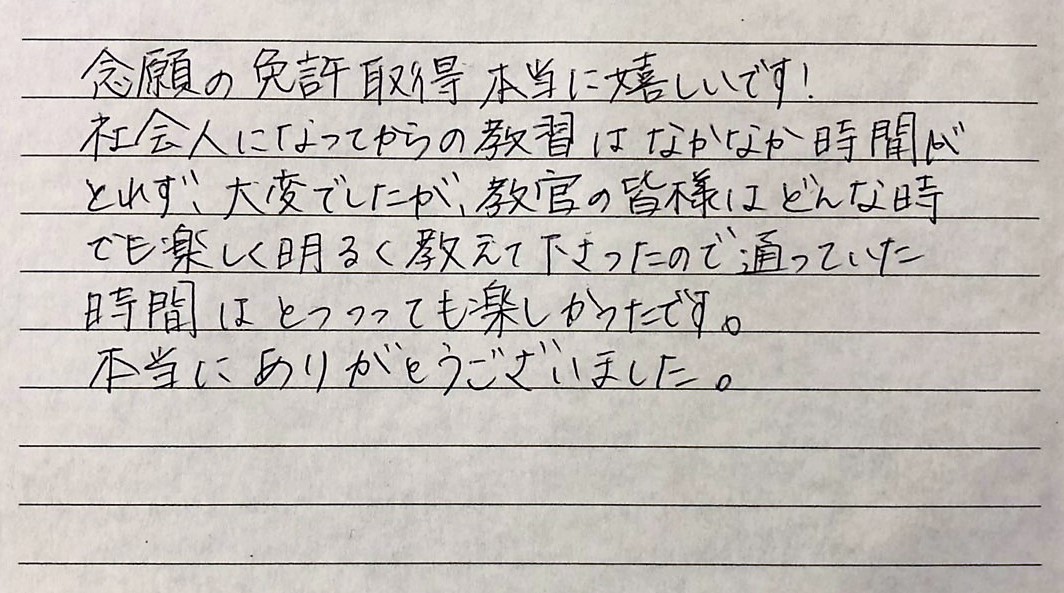 念願の免許取得 本当に嬉しいです!
社会人になってからの教習はなかなか時間が
とれず、大変でしたが、教官の皆様はどんな時
でも楽しく明るく教えて下さったので通っていた
時間はとっっっても楽しかったです。
本当にありがとうございました。